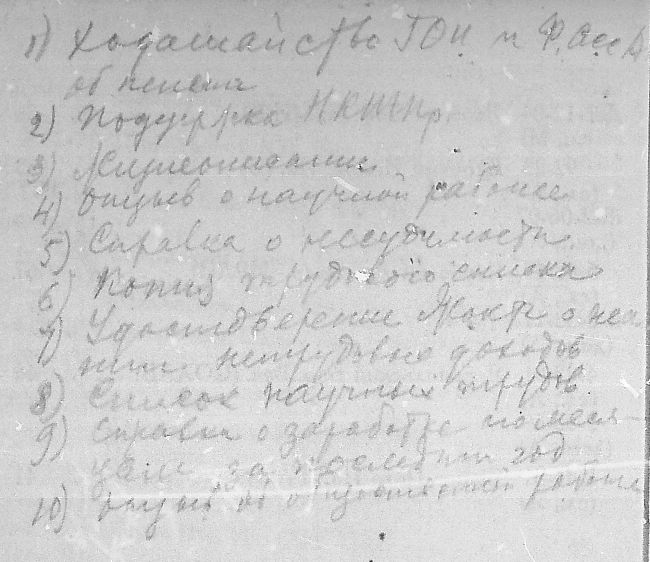 1) Ходатайство ГОИ и Ф.Асс
об пенсии
2) Поддержка НКТП
3) Жизнеописание
4) Отзыв о научной работе
5) Справка о несудимости
6) Копия трудового списка
7) Удостоверение Жакта о неи
нии нетрудовых доходов
8) Список научных трудов
9) Справка о заработке по меся-
цам за последний год
10) Отзыв об общественной работе